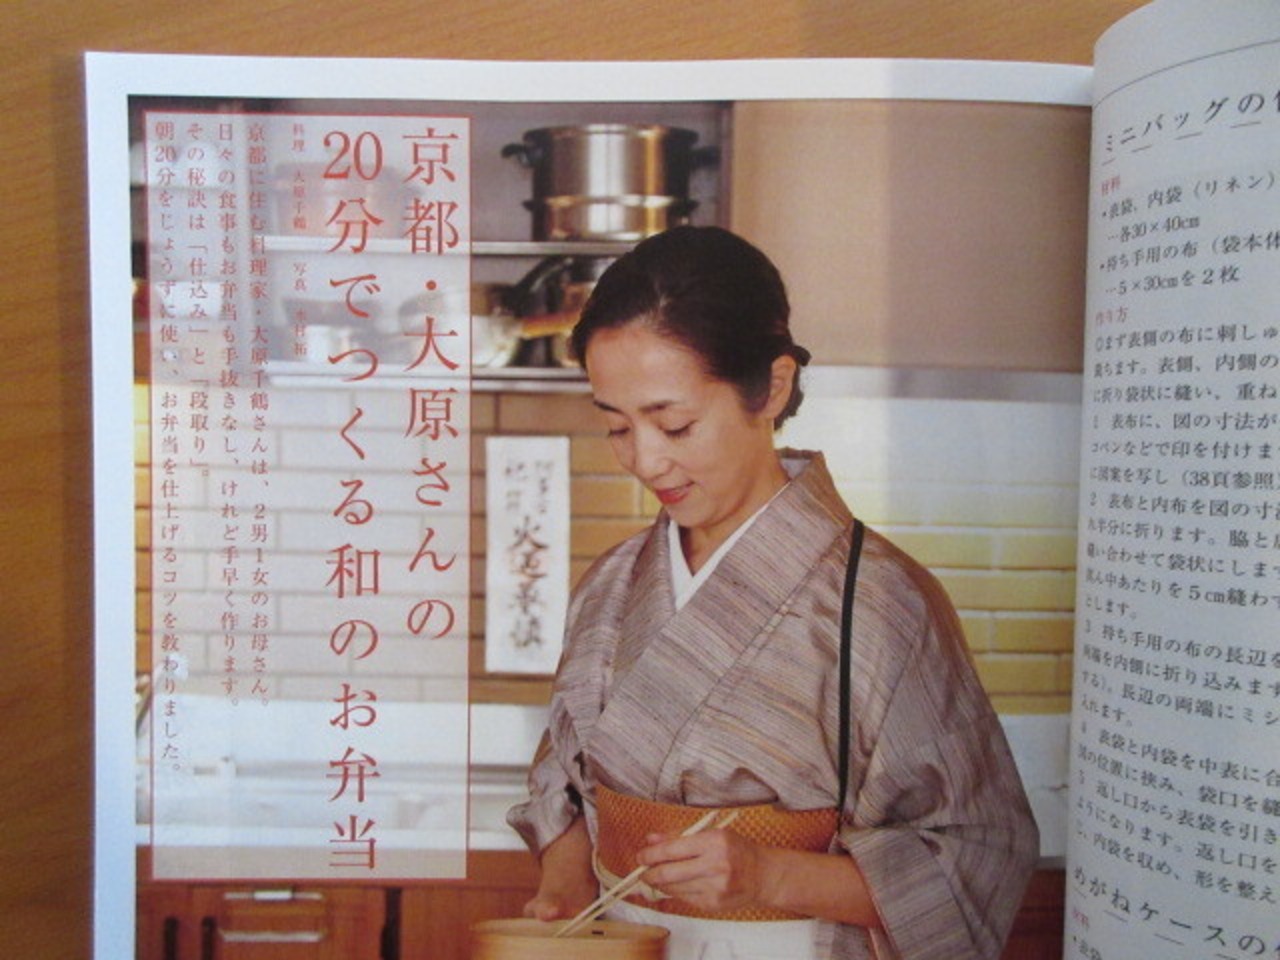 京都・大原さんの
20分でつくる和のお弁当
料理 大原千鶴 写真 木村拓
京都に住む料理家・大原千鶴さんは、2男1女のお母さん。
日々の食事もお弁当も手抜きなし、けれど手早く作ります。
その秘訣は「仕込み」と「段取り」。
朝20分をじょうずに使い、お弁当を仕上げるコツを教わりました。
火迺要慎
ミニバッグの
材料
・表袋、内袋（リネン）
…各30×40cm
・持ち手用の布（袋本体
…5×30cmを2枚
作り方
○まず表側の布に刺しゅ
裁ちます。表側、内側の
に折り袋状に縫い、重ね
1 表布に、図の寸法が
コペンなどで印を付けま
に図案を写し（38頁参照
2 表布と内布を図の寸法
れ半分に折ります。脇と
縫い合わせて袋状にします
真ん中あたりを5cm縫わ
とします。
3 持ち手用の布の長辺を
両端を内側に折り込みます
する）。長辺の両端にミシ
入れます。
4 表袋と内袋を中表に合
図の位置に挟み、袋口を縫
5 返し口から表袋を引き
ようになります。返し口を
い、内袋を収め、形を整え
めがねケースの
材料
・表袋